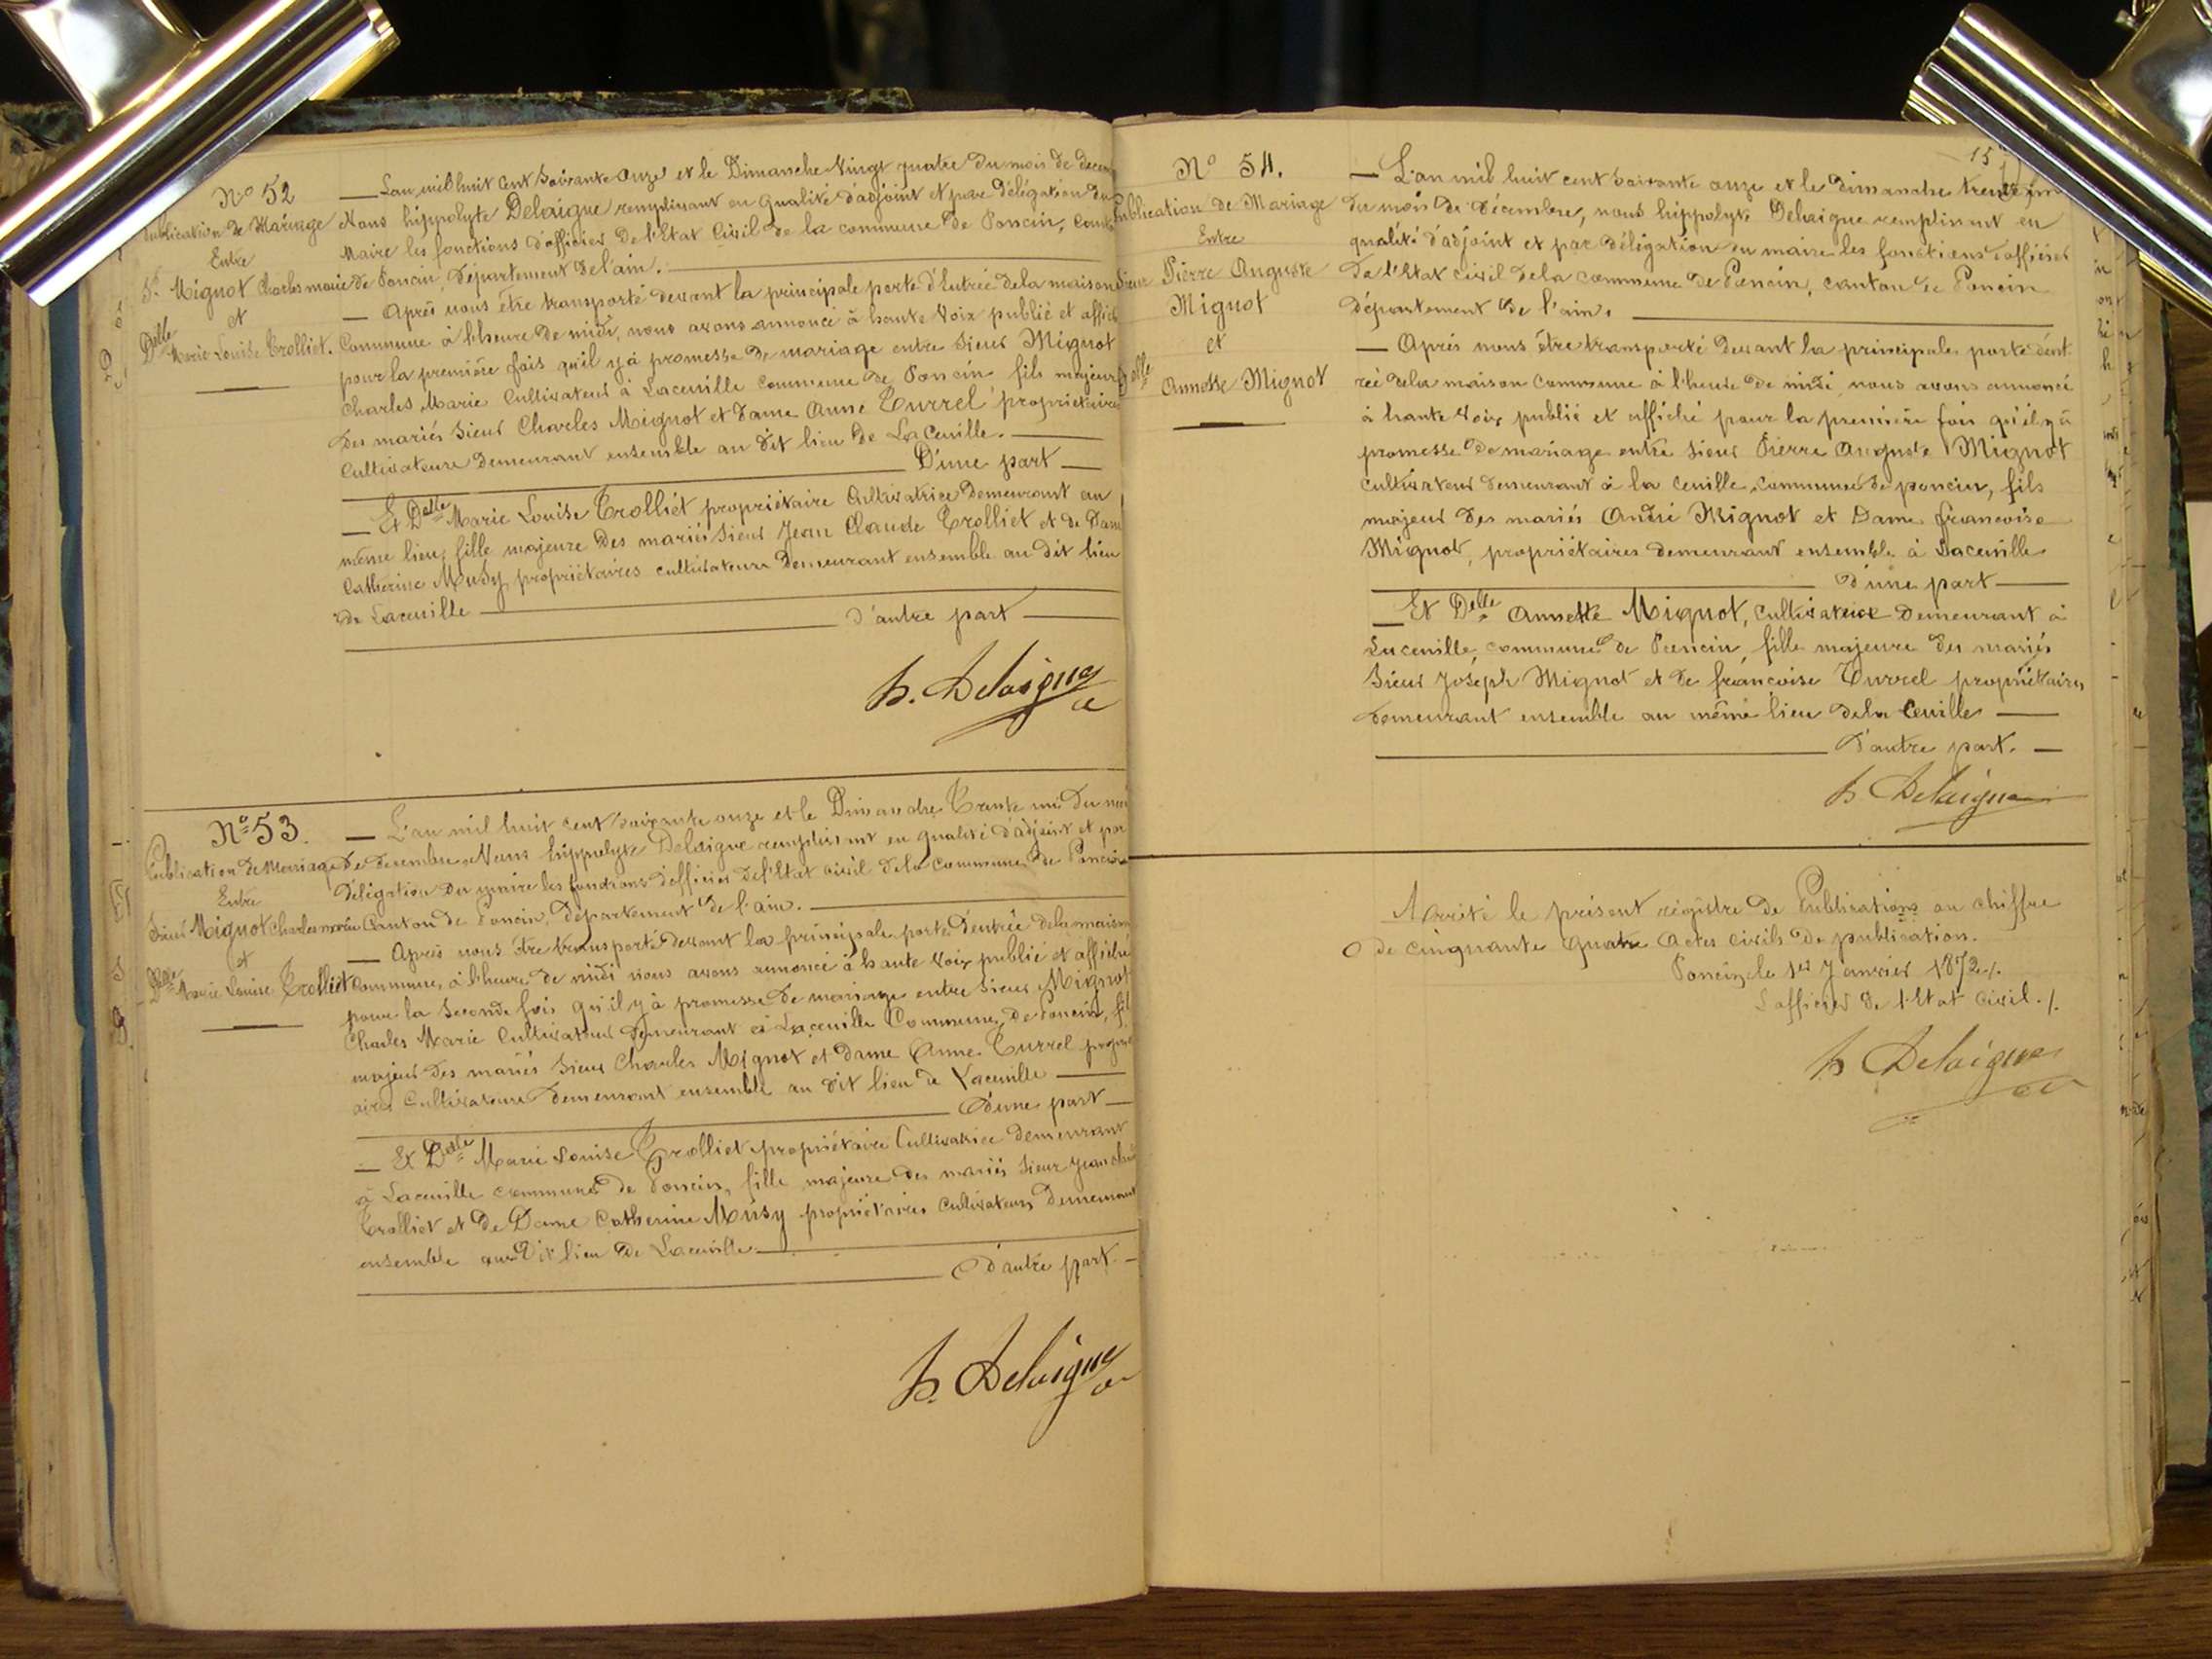 N° 52
Publication de Mariage
Entre
Sr. Mignot Charles marie
et
Delle Marie Louise Trolliet.
— L'an mil huit cent soixante onze et le Dimanche vingt quatre du mois de decem
Nous hippolyte Delaigue remplissant en qualité d'adjoint et par délégation du
Maire les fonctions d'officier de l'Etat Civil de la commune de Poncin, canton
de Poncin, département de l'ain.
— Après nous être transporté devant la principale porte d'Entrée de la maison
Commune à l'heure de midi, nous avons annoncé à haute voix publié et affiché
pour la première fois qu'il y à promesse de mariage entre sieur Mignot
Charles Marie Cultivateur à Laceuille commune de Poncin fils majeur
des mariés sieur Charles Mignot et Dame Anne Turrel propriétaires
Cultivateurs demeurant ensemble au dit lieu de La Ceuille.
D'une part
— Et Delle Marie Louise Trolliet propriétaire Cultivatrice demeurant au
même lieu, fille majeure des mariés sieur Jean Claude Trolliet et de Dame
Catherine Musy propriétaires cultivateurs demeurant ensemble au dit lieu
de Laceuille
d'autre part
h. Delaigue
N° 53.
Publication de Mariage
Entre
Sieur Mignot Charles marie
et
Delle Marie Louise Trolliet
— L'an mil huit cent soixante onze et le Dimanche Trente un du mois
de decembre Nous hippolyte Delaigue remplissant en qualité d'adjoint et par
délégation du maire les fonctions d'officier de l'Etat civil de la commune de Poncin
Canton de Poncin, département de l'ain.
— Après nous être transporté devant la principale porte d'entrée de la maison
Commune, à l'heure de midi nous avons annoncé à haute voix publié et affiché
pour la seconde fois qu'il y à promesse de mariage entre sieur Mignot
Charles Marie Cultivateur demeurant à Laceuille Commune de Poncin, fils
majeur des mariés sieur Charles Mignot et dame Anne Turrel propriét
aires Cultivateurs demeurant ensemble au dit lieu de Laceuille
d'une part
— Et Delle Marie Louise Trolliet propriétaire Cultivatrice demeurant
à Laceuille commune de Poncin, fille majeure des mariés sieur Jean claude
Trolliet et de Dame Catherine Musy propriétaires cultivateurs demeurant
ensemble au dit lieu de Laceuille
d'autre part.
h. Delaigue
15
N° 54.
Publication de Mariage
Entre
Sieur Pierre Auguste
Mignot
et
Delle Annette Mignot
— L'an mil huit cent soixante onze et le dimanche trente un
du mois de décembre, nous hippolyte Delaigue remplissant en
qualité d'adjoint et par délégation du maire les fonctions d'officier
de l'Etat civil de la commune de Poncin, canton de Poncin
département de l'ain.
— Après nous être transporté devant la principale porte d'ent
rée de la maison commune à l'heure de midi, nous avons annoncé
à haute voix publié et affiché pour la première fois qu'il y à
promesse de mariage entre sieur Pierre Auguste Mignot
cultivateur demeurant à la Ceuille, commune de poncin, fils
majeur des mariés André Mignot et Dame francoise
Mignot, propriétaires demeurant ensemble à Laceuille
d'une part
— Et Delle Annette Mignot, cultivatrice demeurant à
Laceuille, commune de Poncin, fille majeure des mariés
sieur Joseph Mignot et de francoise Turrel propriétaires
demeurant ensemble au même lieu de la Ceuille
d'autre part.
h Delaigue
Arrêté le présent régistre de Publications au chiffre
de cinquante quatre actes civils de publication.
Poncin, le 1er Janvier 1872./.
L'officier de l'Etat civil./.
h Delaigue